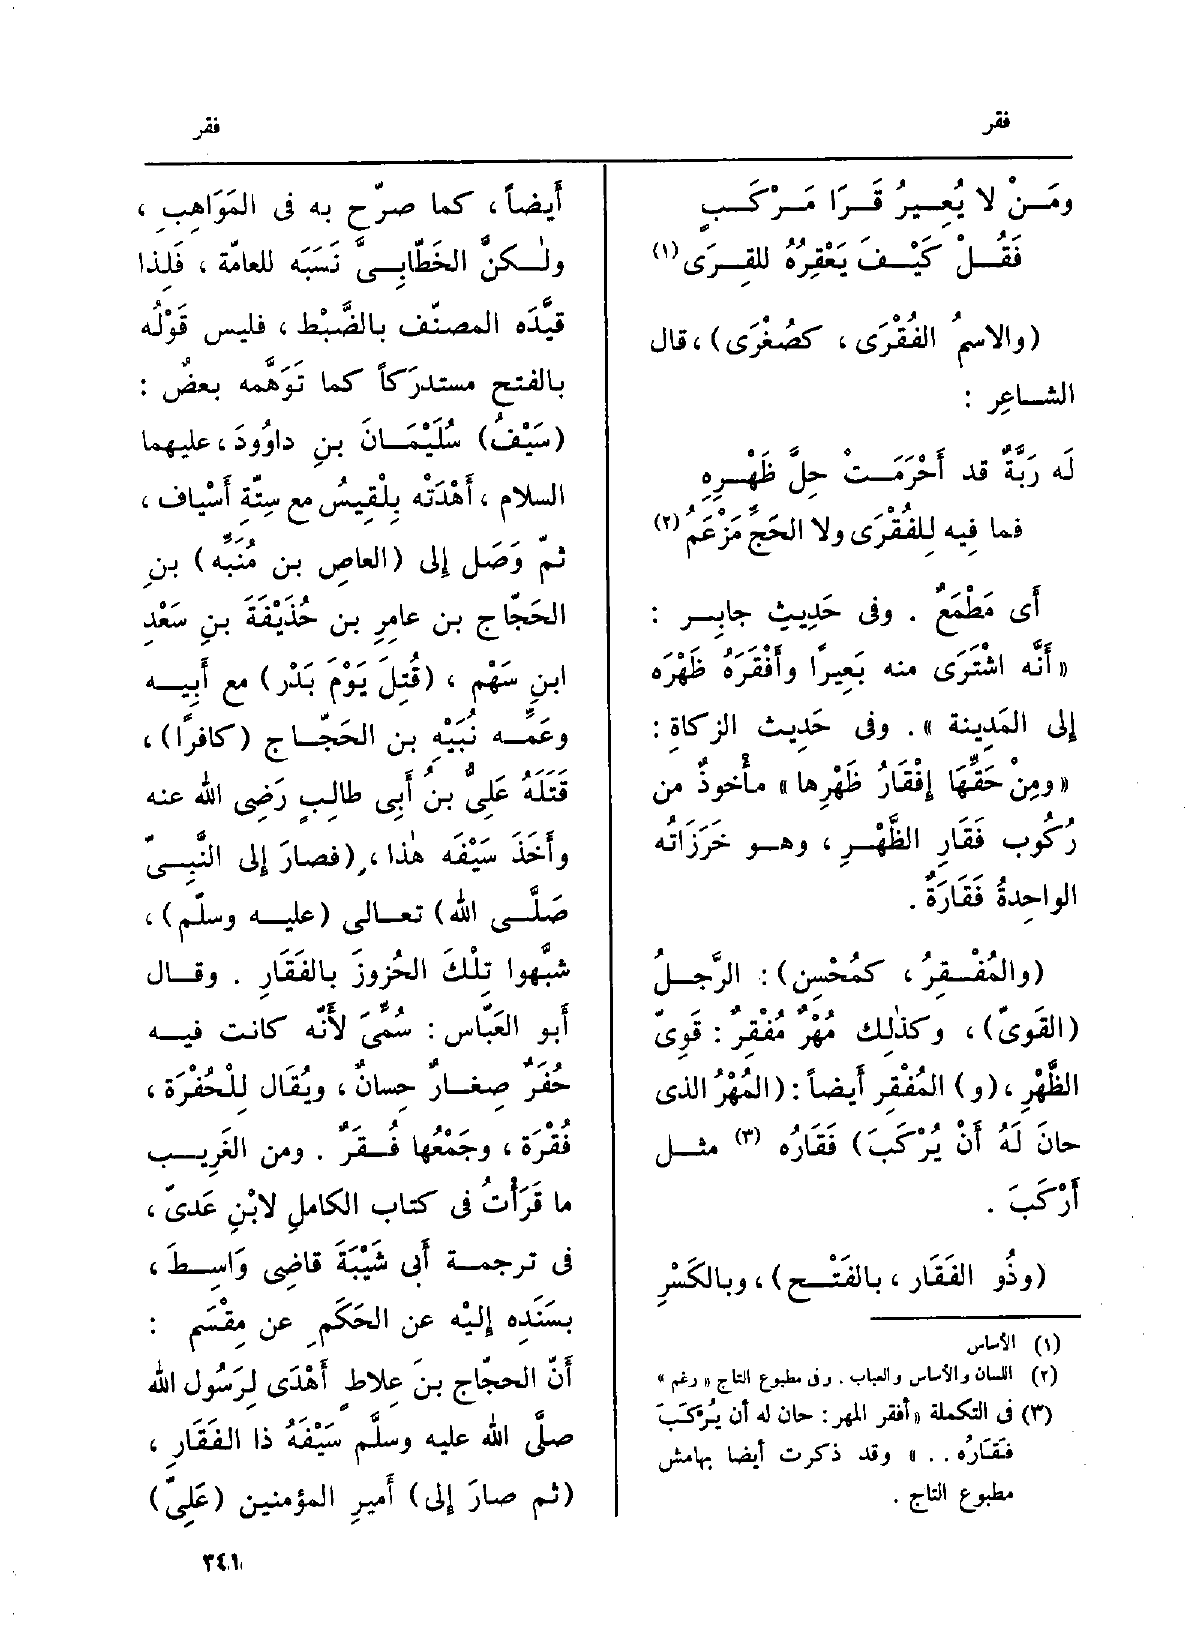 فقر
فقر
ومَــنْ لا يُعِــيرُ قَــرَا مَــرْكَــبٍ
فَقُــلْ كَيْــفَ يَعْقِرُهُ للقِــرَى (١)
(والاسمُ الفُقْرَى ، كصُغْرَى) ، قال
الشــاعِر :
لَه رَبَّةٌ قد أَحْرَمَــتْ حِلَّ ظَهْــرِهِ
فما فِيه لِلفُقْرَى ولا الحَجِّ مَزْعَمُ (٢)
أَى مَطْمَعٌ . وفى حَدِيثِ جابِــر :
« أَنَّه اشْتَرَى منه بَعِيرًا وأَفْقَرَهُ ظَهْرَه
إلى المَدِينة » . وفى حَدِيــث الزكاةِ :
« ومِنْ حَقِّهَا إِفْقَارُ ظَهْرِها » مأْخوذٌ من
رُكُوب فَقَارِ الظَّهْــرِ ، وهــو خَرَزَاتُه
الواحِدةُ فَقَارَةٌ .
(والمُفْــقِرُ ، كمُحْسِن) : الرَّجــلُ
(القَوىّ) ، وكذٰلِك مُهْرٌ مُفْقِرٌ : قَوِىّ
الظَّهْرِ ، (و) المُفْقِر أَيضاً : (المُهْرُ الذى
حانَ لَهُ أَنْ يُرْكَبَ) فَقَارُه (٣) مثــل
أَرْكَبَ .
(وذُو الفَقَار ، بالفَتْــح) ، وبالكَسْرِ
(١) الأساس
(٢) اللسان والأساس والعباب . وفى مطبوع التاج « رغم »
(٣) فى التكملة « أفقر المهر : حان له أن يُرْكَبَ
فَقَارُه . . » وقد ذكرت أيضا بهامش
مطبوع التاج .
أَيضاً ، كما صرّح به فى المَوَاهِبِ ،
ولٰــكنَّ الخَطّابِــىَّ نَسَبَه للعامّة ، فَلِذا
قيَّدَه المصنّف بالضَّبْط ، فليس قَوْلُه
بالفتح مستدرَكاً كما تَوَهَّمه بعضٌ :
(سَيْفُ) سُلَيْمَــانَ بنِ داوُودَ ، عليهما
السلام ، أَهْدَتْه بِلْقِيسُ مع سِتَّةِ أَسْيافٍ ،
ثمّ وَصَل إلى (العاصِ بن مُنَبِّه) بنِ
الحَجّاج بن عامِرِ بن حُذَيْفَةَ بنِ سَعْدِ
ابنِ سَهْم ، (قُتِلَ يَوْمَ بَدْرٍ) مع أَبِيــه
وعَمِّــه نُبَيْهِ بن الحَجّــاج (كافرًا) ،
قَتَلَهُ عَلِىُّ بنُ أَبى طالِبٍ رَضِى الله عنه
وأَخَذَ سَيْفَه هٰذا ، (فصارَ إلى النَّبِــىّ
صَلَّــى الله) تعــالى (عليــه وسلّم) ،
شبَّهوا تِلْكَ الحُزوزَ بالفَقَارِ . وقــال
أبو العَبّاس : سُمِّىَ لأَنّه كانت فيــه
حُفَرٌ صِغــارٌ حِسانٌ ، ويُقَال لِلْحُفْرَة ،
فُقْرَة ، وجَمْعُها فُــقَرٌ . ومن الغَرِيــب
ما قَرَأْتُ فى كتاب الكامِلِ لابْنِ عَدىّ ،
فى ترجمــة أَبى شَيْبَةَ قاضِى وَاسِــطَ ،
بسَنَدِه إِلَيْه عن الحَكَمِ عن مِقْسَمٍ :
أَنّ الحجّاج بنَ عِلاطٍ أَهْدَى لِرَسُول الله
صلَّى الله عليه وسلَّم سَيْفَهُ ذا الفَقَارِ ،
(ثم صارَ إلى) أَميرِ المؤمنين (عَلِىّ)
٣٤١